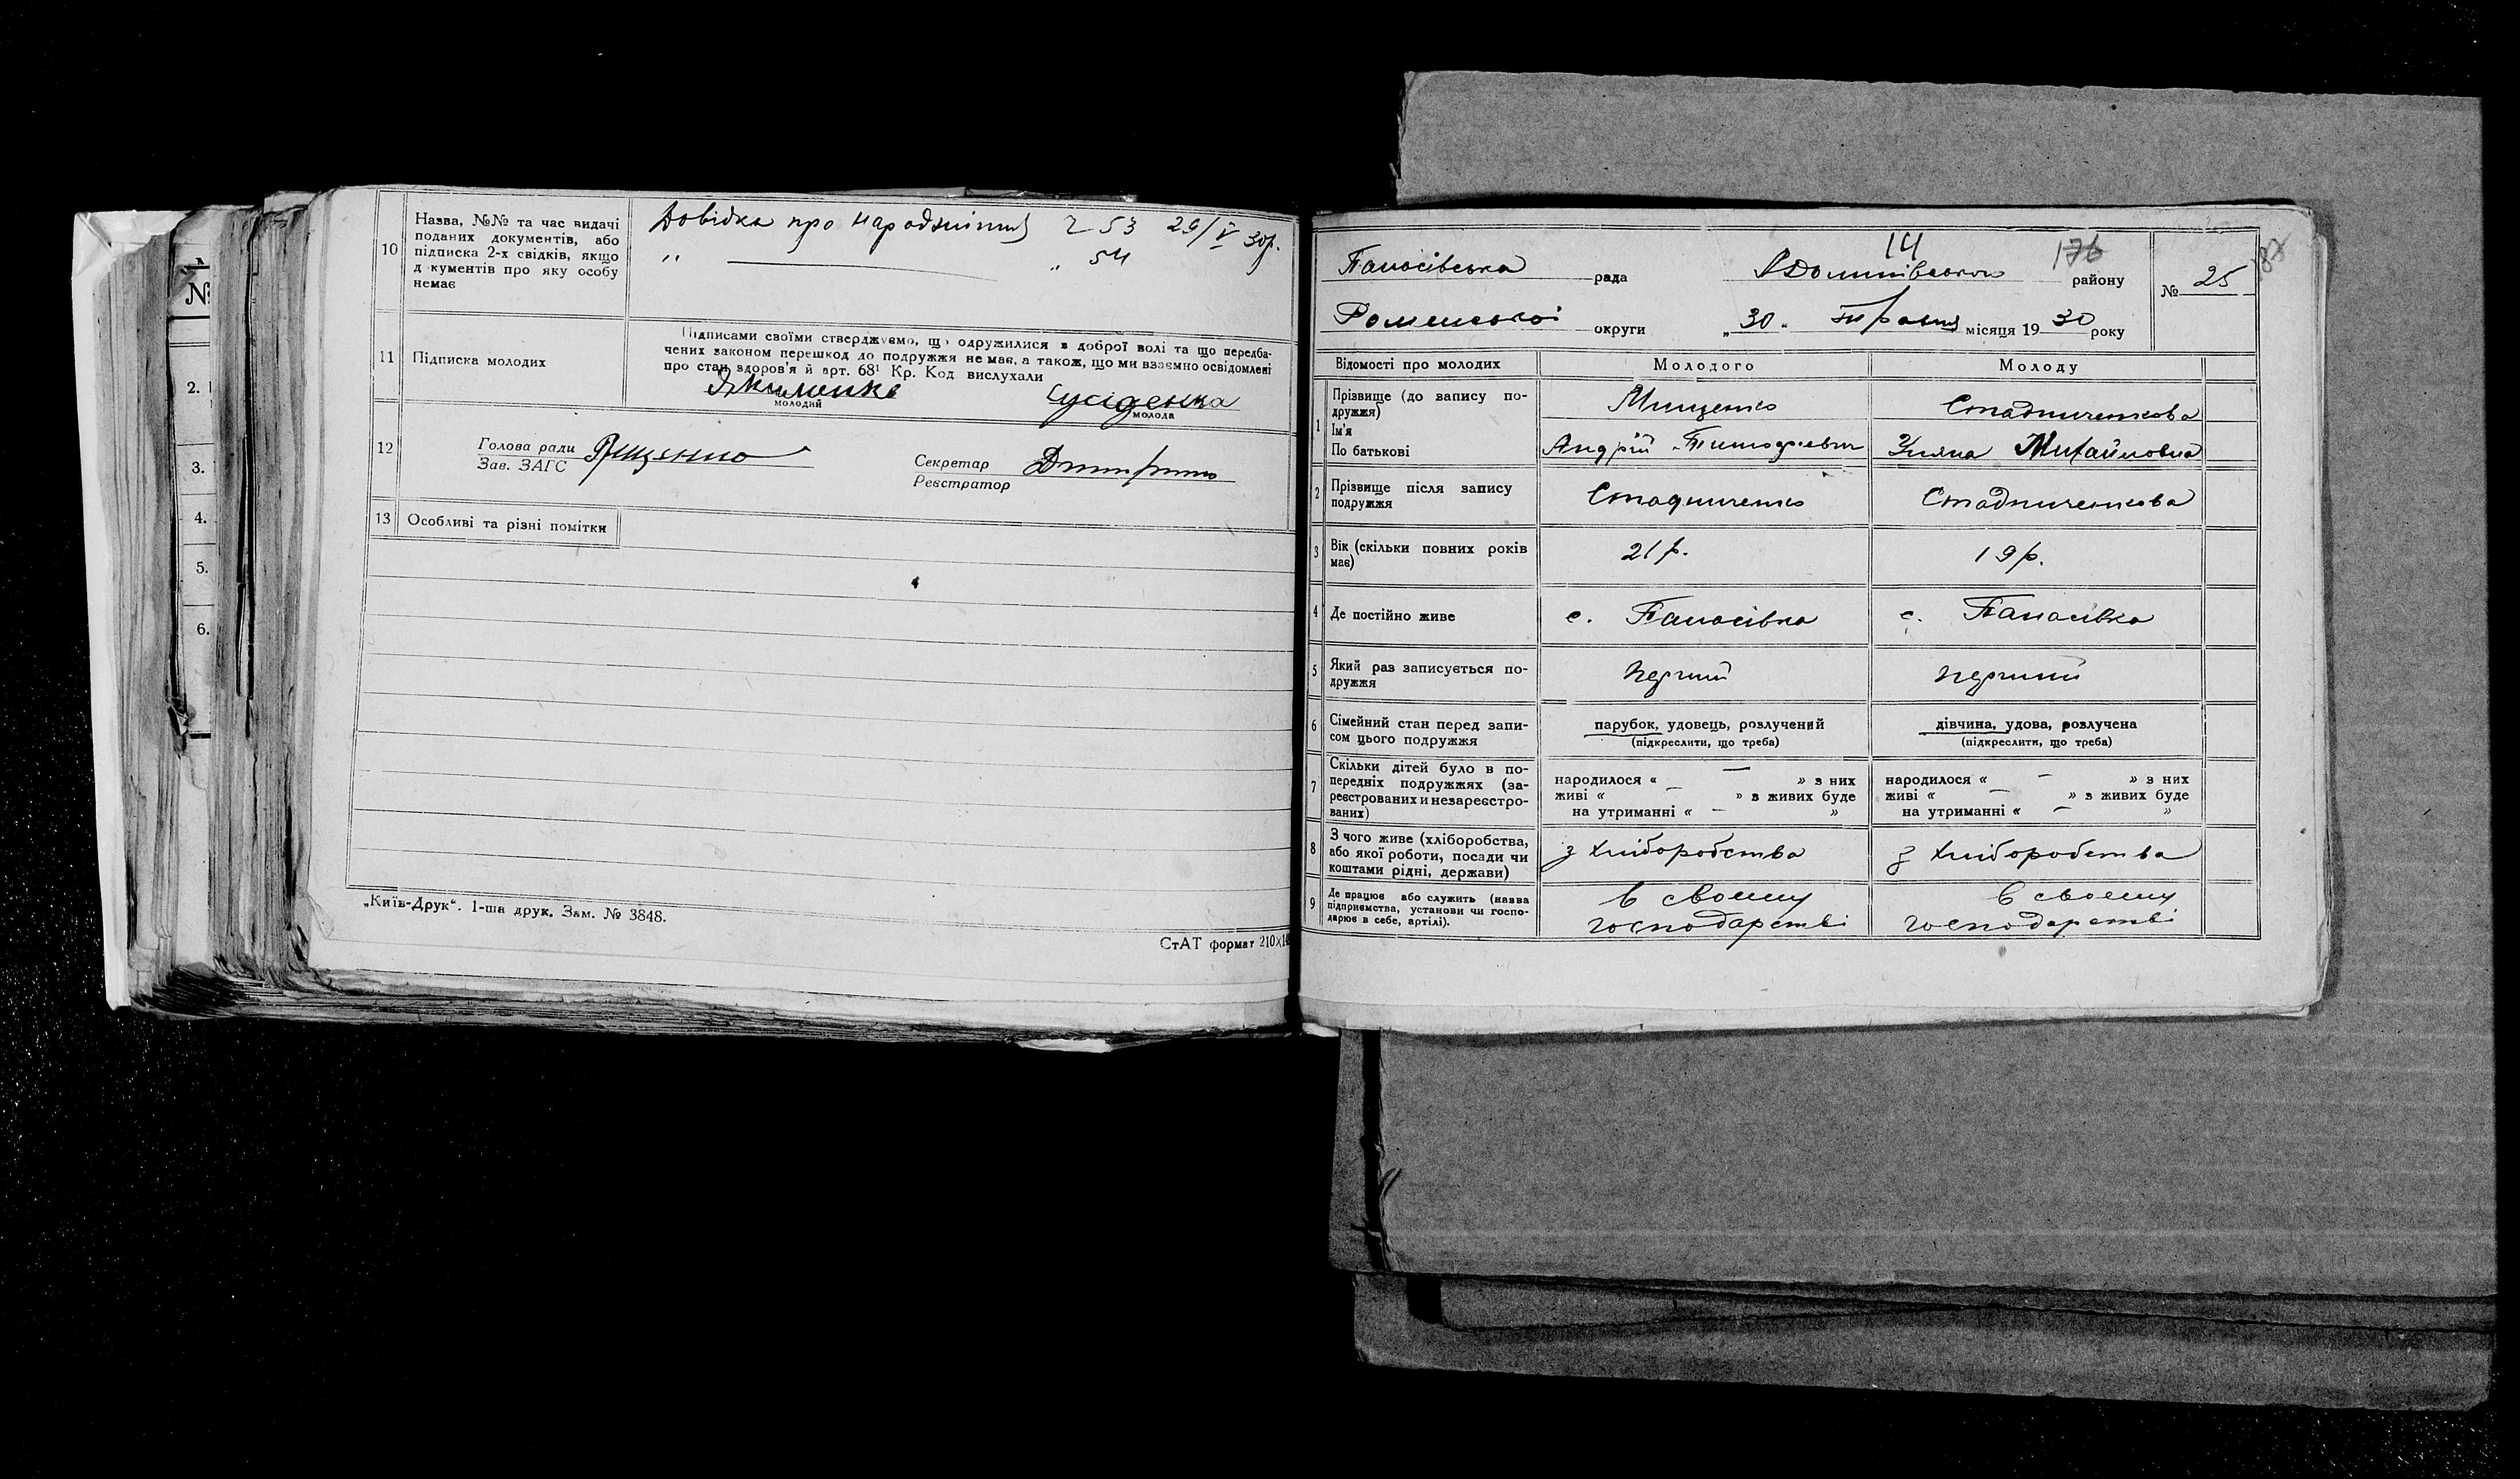 №
2.
3.
4.
5.
6.
10
Назва, №№ та час видачі
поданих документів, або
підписка 2-х свідків, якщо
д кументів про яку особу
немає
Довідка про народження 53 29/V 30р.
" " 54
11
Підписка молодих
Підписами своїми стверджуємо, що одружилися в доброї волі та що передба-
чених законом перешкод до подружжя не має, а також, що ми взаємно освідомлені
про стан здоров'я й арт. 68¹ Кр. Код вислухали
Якименко Сусіденка
молодий молода
12
Голова ради
Зав. ЗАГС
Секретар Дмитренко
Реєстратор
13 Особливі та різні помітки
„Київ-Друк“. 1-ша друк. Зам. № 3848.
СтАТ формат 210×14
14 176 187
Панасівська рада району № 25
Роменської округи „30“ травня місяця 1930 року
Відомості про молодих Молодого Молоду
1 Прізвище (до запису по-
дружжя) Мищенко Стадниченкова
Ім'я
По батькові Андрій Тимофієвич Уляна Михайловна
2 Прізвище після запису
подружжя Стадниченко Стадниченкова
3 Вік (скільки повних років
має) 21 р. 19 р.
4 Де постійно живе с. Панасівка с. Панасівка
5 Який раз записується по-
дружжя перший перший
6 Сімейний стан перед запи-
сом цього подружжя
парубок, удовець, розлучений дівчина, удова, розлучена
(підкреслити, що треба) (підкреслити, що треба)
7 Скільки дітей було в по-
передніх подружжях (за-
реєстрованих и незареєстро-
ваних)
народилося « — » з них народилося « — » з них
живі « — » в живих буде живі « — » в живих буде
на утриманні « — » на утриманні « — »
8 З чого живе (хліборобства,
або якої роботи, посади чи
коштами рідні, держави)
з хліборобства з хліборобства
9 Де працює або служить (назва
підприємства, установи чи госпо-
дарює в себе, артілі).
в своєму в своєму
господарстві господарстві